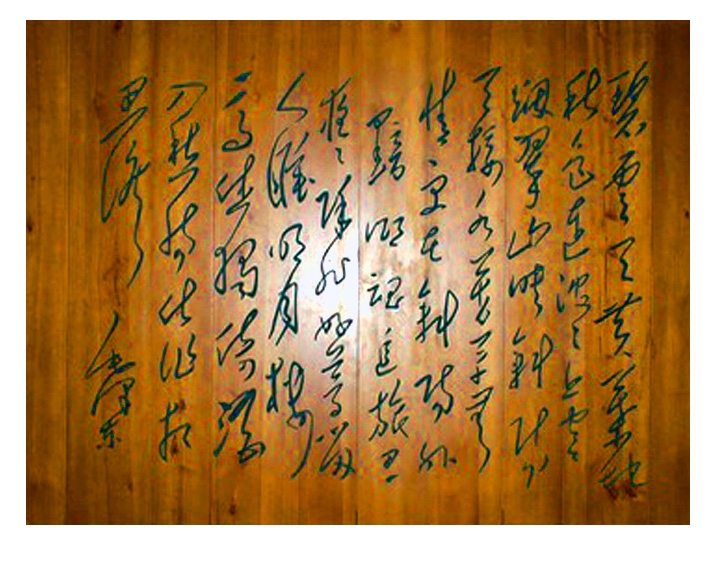 碧雲天黄葉地
秋色連波々上寒
烟翠山映斜陽
天接水芳草無
情更在斜陽外
黯鄉魂追旅思
夜々除非好夢留
人睡明月樓
高休獨倚酒
入愁腸化作相
思淚
毛澤東